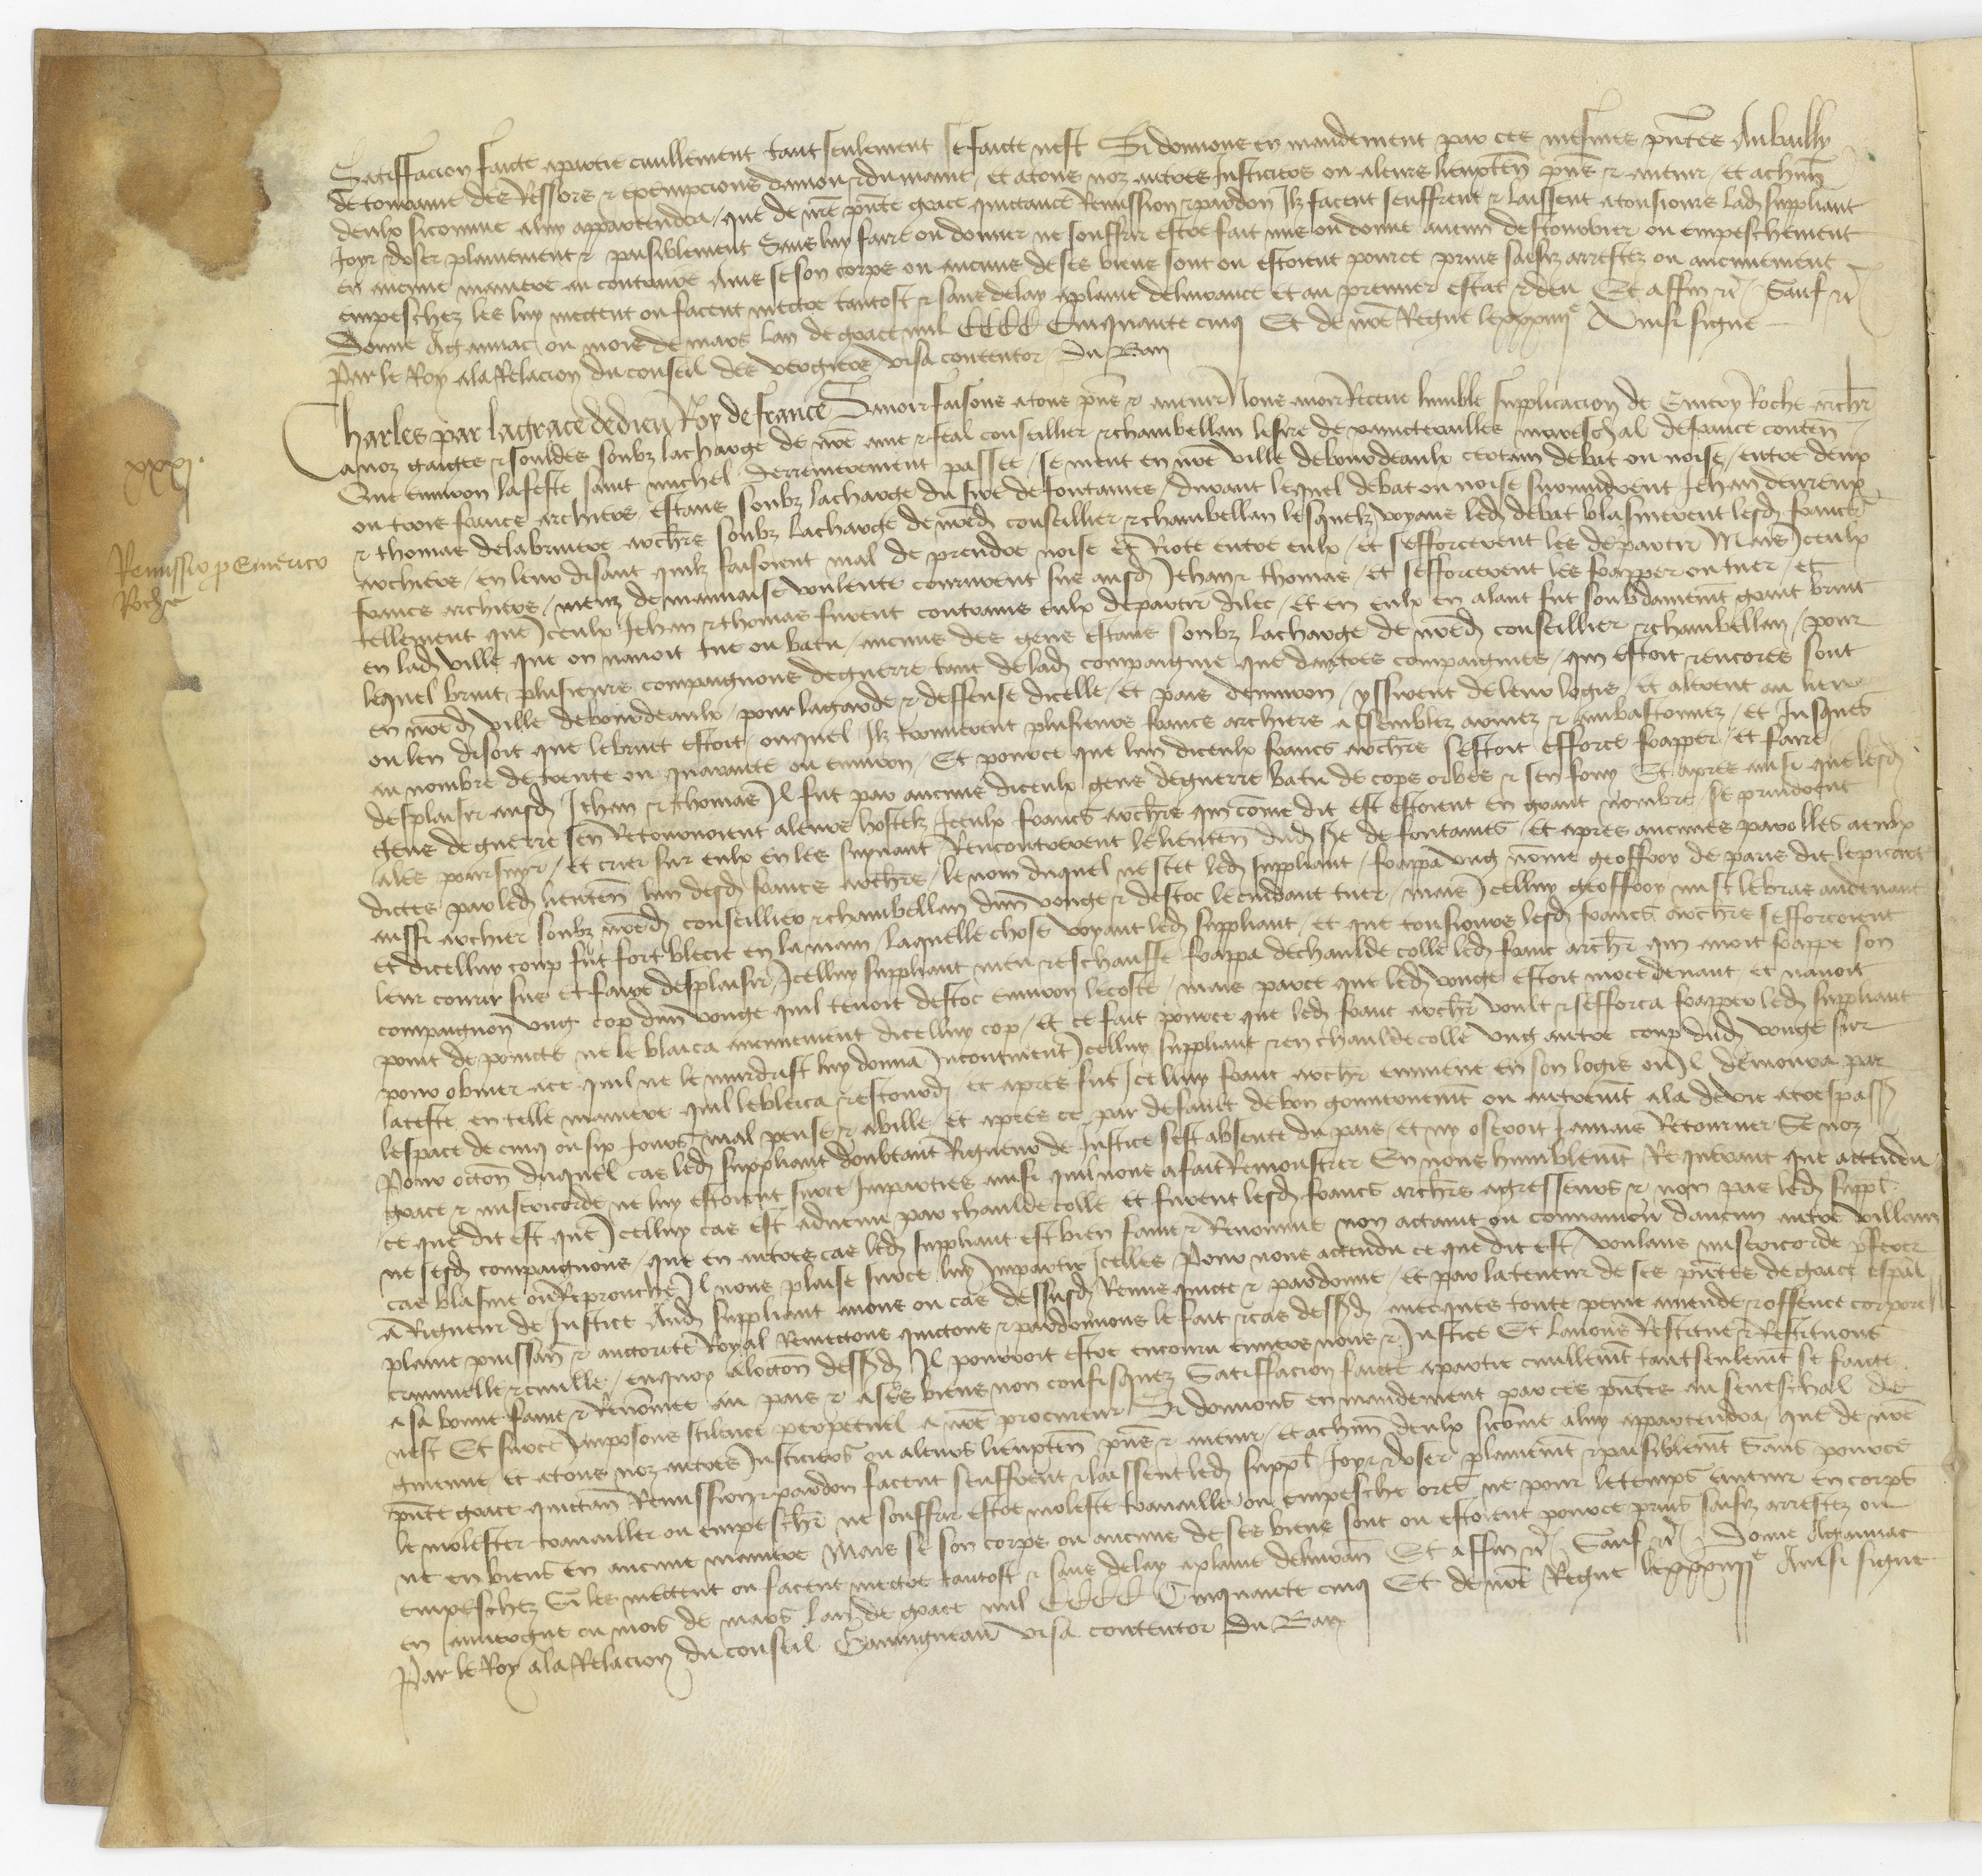 Satiffacion faicte a partie civillement tant seulement se faicte nest Si donnons en mandement par ces mesmes pntes Au bailly
de touraine des Ressors & exempcions danjou & du maine / et a tous noz autres Justiciers ou a leurs lieuxten pns & avenir / et a chun
deulx si comme a luy appartendra / que de nre pnte grace quictance Remission & pardon Ilz facent seuffrent & laissent a tousiours lad suppliant
Joyr & user plainement & paisiblement Sans luy faire ou donner ne souffrir estre fait mis ou donne aucun destourbier ou empeschement
en aucune maniere au contraire Ains se son corps ou aucuns de ses biens sont ou estoient pource prins saisiz arrestez ou aucunement
empeschez les luy mectent ou facent mectre tantost & sans delay a plaine delivrance et au premier estat & deu Et affin &c Sauf &c
Donne A gannac ou mois de mars lan de grace mil CCCC Cinquante cinq Et de nre Regne le xxxiiiie Ainsi signe
Par le Roy a la Relacion du conseil des vergiers visa contentor Du Ban
Charles par la grace de dieu Roy de france Savoir faisons a tous pns & avenir Nous avoir Receue humble supplicacion de Emery Roche archr
a noz gaiges & souldes soubz la charge de nre ame & feal conseillier & chambellan le sire de xainctrailles mareschal de france conten
Que environ la feste saint michel derrenierement passee / se meut en nre ville de bourdeaulx certain debat ou noise / entre deux
ou trois francs archiers estans soubz la charge du sire de fontaines / durant lequel debat ou noise sourvindrent Jehan
& thomas de la bruiere archrs soubz la charge de nred conseillier & chambellan lesquelz voyans led debat blasmerent lesd francs
archiers / en leur disant quilz faisoient mal de prendre noise et Riote entre eulx / et sefforcerent les departir Mais Iceulx
francs archiers / meuz de mauvaise voulente coururent sus ausd Jehan & thomas / et sefforcerent les frapper ou tuer / et
tellement que Iceulx Jehan & thomas furent contrains eulx departir dilec / et en eulx en alant fut soubdainemt grant bruit
en lad ville que on navoit tue ou batu / aucuns des gens estans soubz la charge de nred conseillier & chambellan / pour
lequel bruit plusieurs compaignons de guerre tant de lad compaignie que dautres compaignies / qui estoit & encores sont
en nred ville de bourdeaulx / pour la garde & deffense dicelle / et pais denviron / yssirent de leur logis / et alerent au lieu
ou len disoit que le bruit estoit / ouquel Ilz trouverent plusieurs francs archiers assemblez armez & embastonnez / et Jusques
au nombre de trente ou quarante ou environ / Et pource que lun diceulx francs archrs sestoit efforce frapper / et faire
desplaisir ausd Jehan & thomas Il fut par aucuns diceulx gens de guerre batu de cops orbes & sen fouy Et apres ainsi que lesd
gens de guerre sen Retournoient a leurs hostelz Iceulx francs archrs qui come dit est estoient en grant nombre / se prindrent
a les poursuyr / et crier sur eulx en les suyvant Rencontrerent le lieuten dud sre de fontaines / Et apres aucunes parolles a eulx
dictes par led lieuten lun desd francs archrs / le nom duquel ne scet led suppliant / frappa ung nome geoffroy de paris dit le picart
aussi archier soubz nred conseillier & chambellan dun vouge & destoc le cuidant tuer / mais Icelluy geoffroy mist le bras audevant
et dicelluy coup fut fort blecie en la main / laquelle chose voyant led suppliant / et que tousiours lesd francs archrs sefforcoient
leur courir sus et faire desplaisir Icelluy suppliant meu & eschauffe frappa de chaulde colle led franc archr qui avoit frappe son
compaignon ung cop dun vouge quil tenoit destoc environ le coste / mais parce que led vouge estoit mocce devant et navoit
point de poincte ne le bleca aucunement dicelluy cop / Et ce fait pource que led franc archr voult & sefforca frapper led suppliant
pour obvier a ce quil ne le murdrist luy donna Incontinent Icelluy suppliant & en chaulde colle ung autre coup dud vouge sur
la teste en telle maniere quil le bleca & estourd / et apres fut Icelluy franc archr emmene en son logis ou Il demoura par
lespace de cinq ou six Jours mal pense & abille / et apres ce par default de bon gouvernemt ou autremt ala de vie a trespass
Pour occon duquel cas led suppliant doubtant Rigueur de Justice sest absente du pais / et ny oseroit Jamais Retourner Se noz
grace & misericorde ne luy estoient sur ce Imparties ainsi quil nous a fait Remonstrer En nous humblemt Requerant que attendu
ce que dit est que Icelluy cas est advenu par chaulde colle et furent lesd francs archrs agresseurs & non pas led suppl
ne sesd compaignons / que en autres cas led suppliant est bien fame & Renomme non actaint ou convaincu daucun autre villain
cas blasme ou Reprouche Il nous plaise sur ce luy Impartir Icelles Pour nous attendu ce que dit est / voulans misericorde pferer
a Rigueur de Justice Aud suppliant avons ou cas dessusd Remis quicte & pardonne / et par la teneur de ces pntes de grace espal
plaine puissan & auctorite Royal Remectons quictons & pardonnons le fait & cas dessd avecques toute peine amende & offence corporel
criminelle & civille / en quoy a loccon dessd Il pourroit estre encouru envers nous & Justice Et lavons Restitue & Restituons
a sa bonne fame & Renomee au pais & a ses biens non confisquez Satiffacion faicte a partie civillemt tant seulemt se faicte
nest Et sur ce Imposons silence perpetuel a nre procureur Si donnons en mandement par ces pntes au seneschal de
guienne et a tous noz autres Justiciers ou a leurs lieuxten pns & avenir / et a chun deulx si come a luy appartendra / que de nre
pnte grace quictan Remission & pardon facent seuffrent & laissent led suppl Joyr & user plainemt & paisiblemt Sans pource
le molester travailler ou empeschr ne souffrir estre moleste travaille ou empesche ores ne pour le temps avenir en corps
ne en biens en aucune maniere Mais se son corps ou aucuns de ses biens sont ou estoient pource prins saisiz arrestez ou
empeschez Si les mectent ou facent mectre tantost & sans delay a plaine delivran Et affin &c Sauf &c Donne A gannac
en auvergne ou mois de mars lan de grace mil CCCC Cinquante cinq Et de nre Regne le xxxiiiie Ainsi signe
Par le Roy a la Relacion du conseil visa contentor Du Ban
xxxj.
Remissio p Emerico
Roche